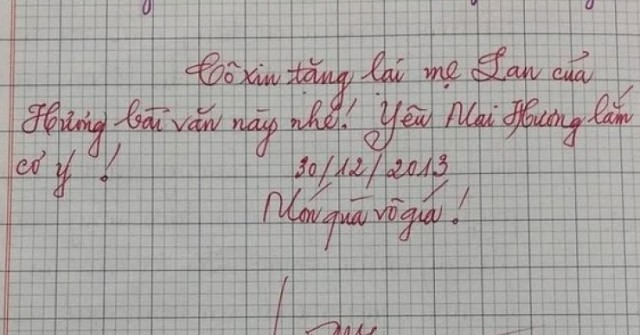 Cô xin tặng lại mẹ Lan của
Hương bài văn này nhé! Yêu Mai Hương lắm
cơ ý!
30/12/2013
Món quà vô giá!